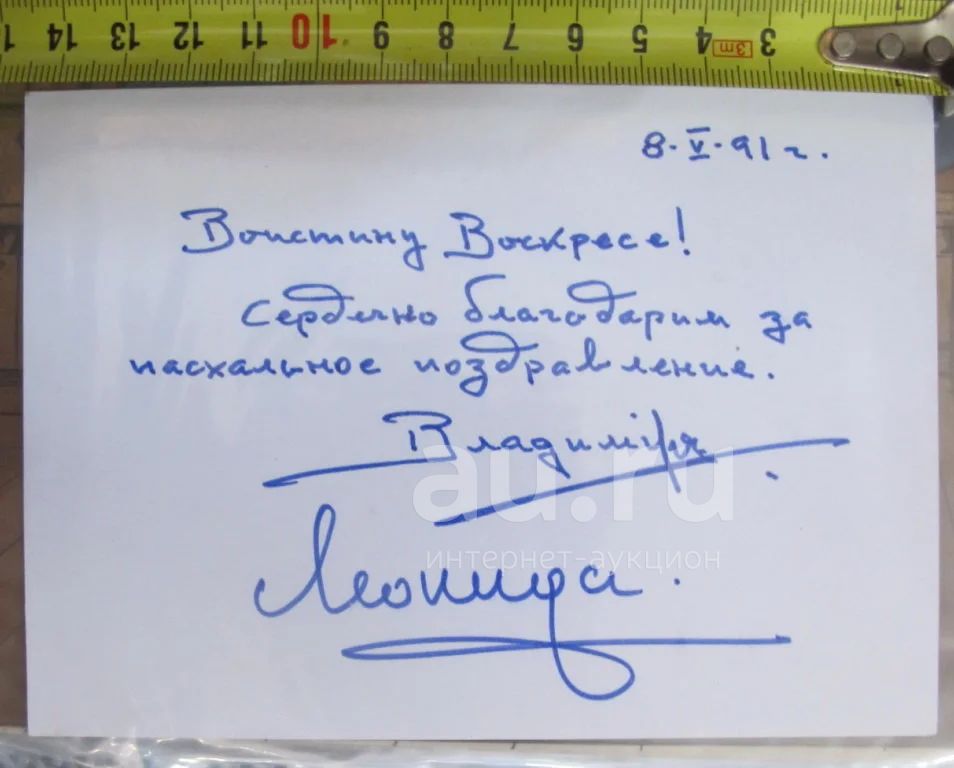 1 14 13 12 11 10 9 8 7 6 5 4 3m 3
8·V·91 г.
Воистину Воскресе!
Сердечно благодарим за
пасхальное поздравление.
Владиміръ.
Леонида.
au.ru
интернет-аукцион